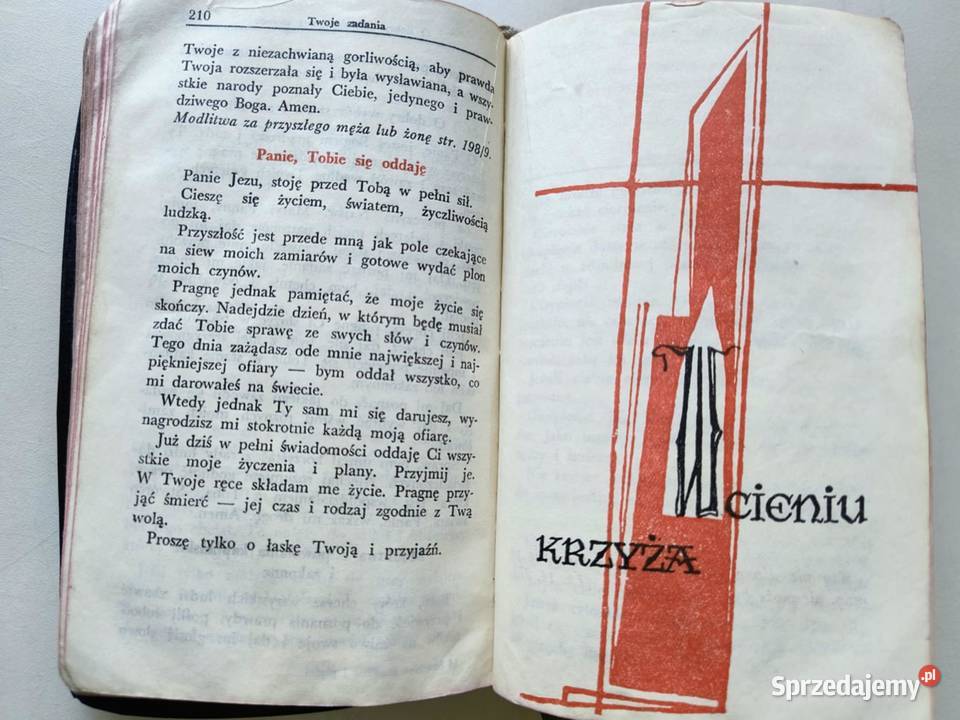 210
Twoje zadania
Twoje z niezachwianą gorliwością, aby prawda
Twoja rozszerzała się i była wysławiana, a wszy-
stkie narody poznały Ciebie, jedynego i praw-
dziwego Boga. Amen.
Modlitwa za przyszłego męża lub żonę str. 198/9.
Panie, Tobie się oddaję
Panie Jezu, stoję przed Tobą w pełni sił.
Cieszę się życiem, światem, życzliwością
ludzką.
Przyszłość jest przede mną jak pole czekające
na siew moich zamiarów i gotowe wydać plon
moich czynów.
Pragnę jednak pamiętać, że moje życie się
skończy. Nadejdzie dzień, w którym będę musiał
zdać Tobie sprawę ze swych słów i czynów.
Tego dnia zażądasz ode mnie największej i naj-
piękniejszej ofiary — bym oddał wszystko, co
mi darowałeś na świecie.
Wtedy jednak Ty sam mi się darujesz, wy-
nagrodzisz mi stokrotnie każdą moją ofiarę.
Już dziś w pełni świadomości oddaję Ci wszy-
stkie moje życzenia i plany. Przyjmij je.
W Twoje ręce składam me życie. Pragnę przy-
jąć śmierć — jej czas i rodzaj zgodnie z Twą
wolą.
Proszę tylko o łaskę Twoją i przyjaźń.
W CIENIU
KRZYŻA
Sprzedajemy.pl